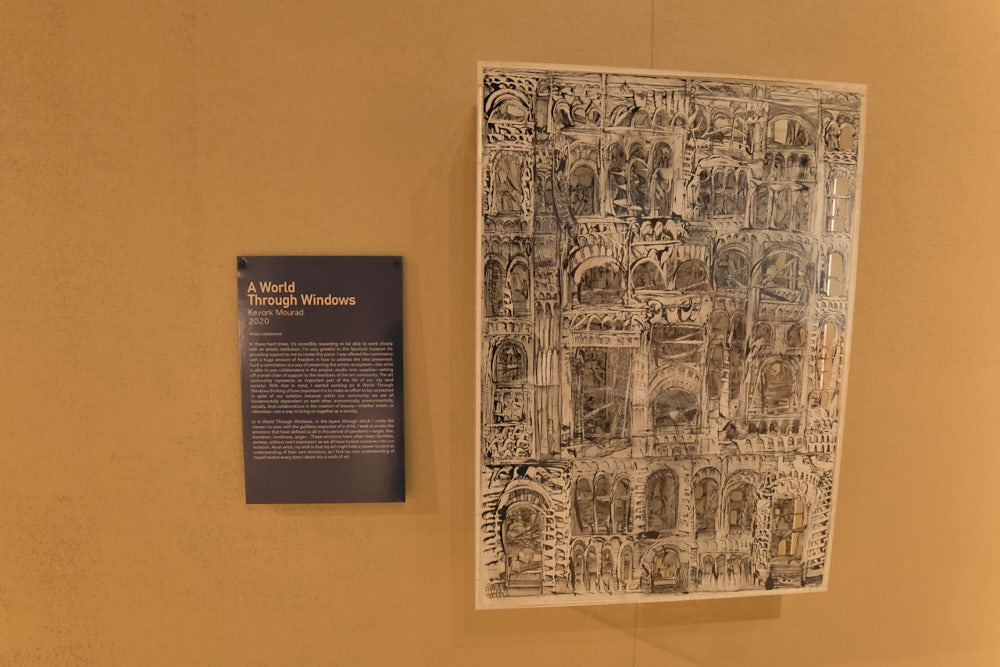 A World
Through Windows
Kevork Mourad
2020
Artist's statement
In these hard times, it's incredibly rewarding to be able to work closely
with an artistic institution. I'm very grateful to the Spurlock Museum for
providing support to me to create this piece. I was offered the commission
with a huge amount of freedom in how to address the idea presented.
Such a commission is a way of preserving the artistic ecosystem—the artist
is able to pay collaborators in the project, studio rent, supplies—setting
off a small chain of support to the members of the art community. The art
community represents an important part of the life of our city (and
society). With that in mind, I started working on A World Through
Windows thinking of how important it is to make an effort to be connected
in spite of our isolation because within our community, we are all
fundamentally dependent on each other, economically, environmentally,
socially. And collaborations in the creation of beauty—whether artistic or
otherwise—are a way to bring us together as a society.
In A World Through Windows, in the layers through which I invite the
viewers to peer with the guiltless voyeurism of a child, I seek to evoke the
emotions that have defined us all in this period of pandemic—anger, fear,
boredom, loneliness, anger. These emotions have often been formless,
aimless, without overt expression as we all have tucked ourselves into our
isolation. As an artist, my wish is that my art might help a viewer toward an
understanding of their own emotions, as I find my own understanding of
myself evolve every time I delve into a work of art.